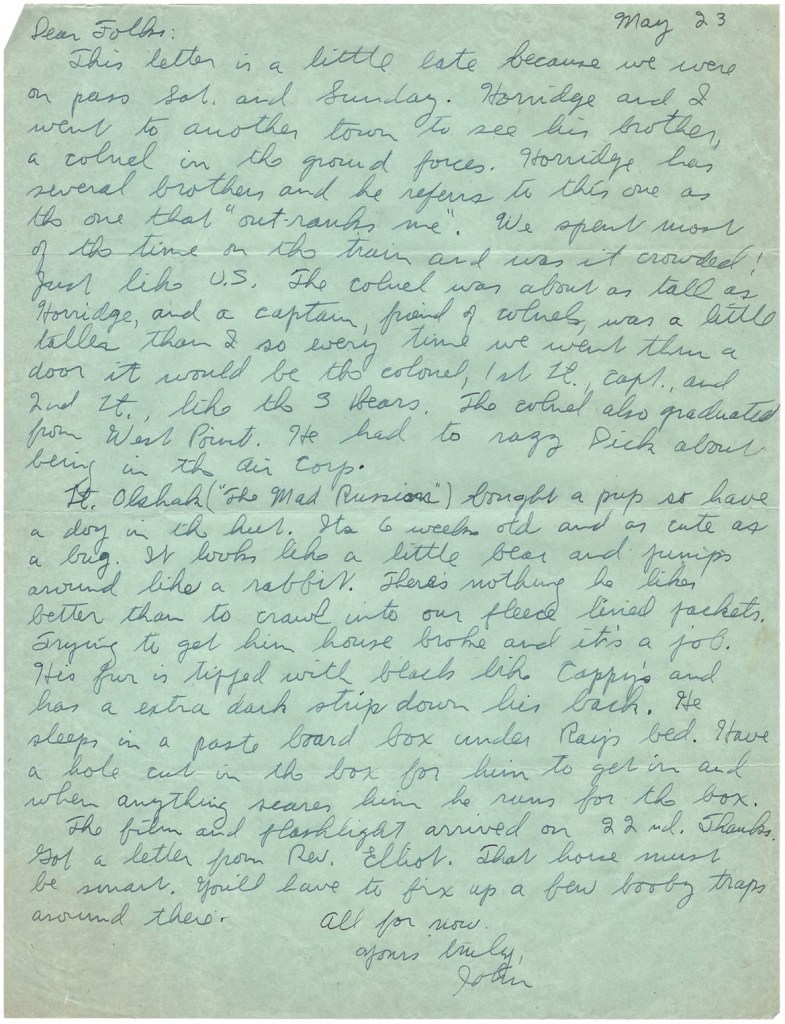 May 23
Dear Folks:
This letter is a little late because we were
on pass Sat. and Sunday. Horridge and I
went to another town to see his brother,
a colnel in the ground forces. Horridge has
several brothers and he referrs to this one as
the one that "out-ranks me". We spent most
of the time on the train and was it crowded!
Just like U.S. The colnel was about as tall as
Horridge, and a captain, friend of colnels, was a little
taller than I so every time we went thru a
door it would be the colonel, 1st Lt., capt., and
2nd Lt., like the 3 Bears. The colnel also graduated
from West Point. He had to razz Dick about
being in the Air Corp.
Lt. Olshak ("The Mad Russian") bought a pup so have
a dog in the hut. Its 6 weeks old and as cute as
a bug. It looks like a little bear and jumps
around like a rabbit. There's nothing he likes
better than to crawl into our fleece lined jackets.
Trying to get him house broke and it's a job.
His fur is tipped with black like Cappy's and
has a extra dark strip down his back. He
sleeps in a paste board box under Ray's bed. Have
a hole cut in the box for him to get in and
when anything scares him he runs for the box.
The film and flashlight arrived on 22nd. Thanks.
Got a letter from Rev. Elliot. That horse must
be smart. You'll have to fix up a few booby traps
around there.
All for now.
Yours truly,
John